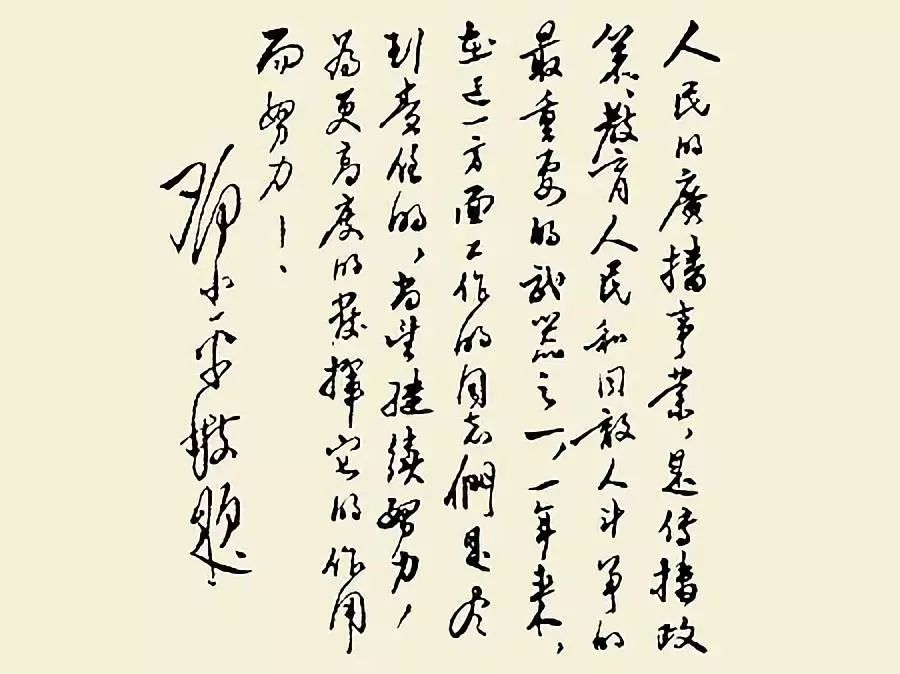 人民的廣播事業，是傳播政
策、教育人民和同敵人斗爭的
最重要的武器之一，一年來，
在这一方面工作的同志們是尽
到責任的，尚望繼續努力，
為更高度的發揮它的作用
而努力！
鄧小平敬題